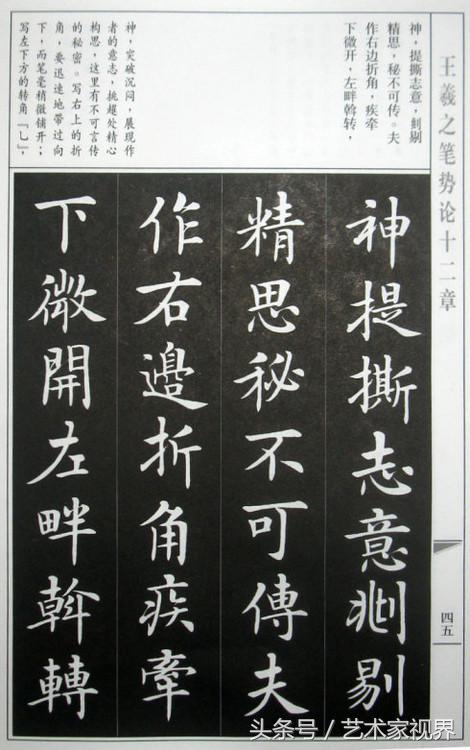 王羲之笔势论十二章
四五
神，提撕志意，剔
精思，秘不可传。夫
作右边折角，疾牵
下微开，左畔斡转，
神，突破沉闷，展现作
者的意志，挑趯处精心
构思，这里有不可言传
的秘密。写右上的折
角，要迅速地带过向
下，而笔毫稍微铺开；
写左下方的转角「乚」，
神提撕志意剔
精思秘不可傳夫
作右邊折角疾牽
下微開左畔斡轉
头条号／艺术家视界